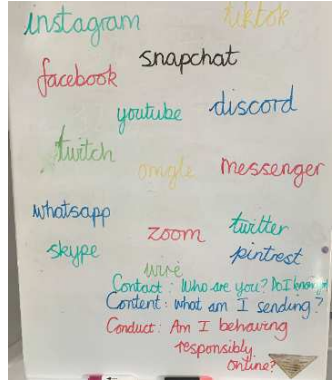 instagram tiktok
snapchat
facebook
youtube discord
twitch
omgle messenger
whatsapp
zoom twitter
skype pintrest
wire
Contact : Who are you? Do I know
Content : what am I sending?
Conduct : Am I behaving
responsibly
online?